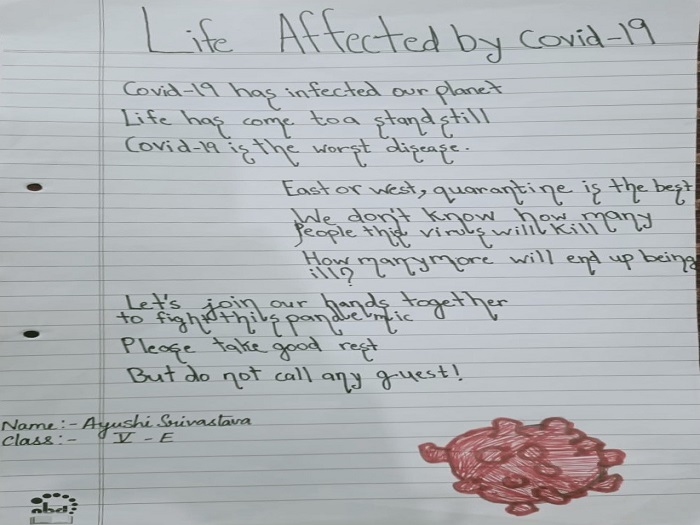 Life Affected by Covid-19
Covid-19 has infected our planet
Life has come to a standstill
Covid-19 is the worst disease.
East or west, quarantine is the best
We don't know how many
People this virus will kill
How many more will end up being
ill?
Let's join our hands together
to fight this pandemic
Please take good rest
But do not call any guest!
Name:- Ayushi Srivastava
Class:- V - E